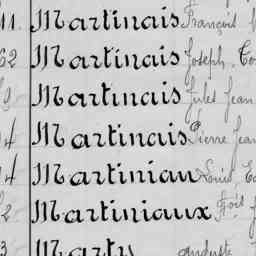 11. Martinais François
62 Martinais Joseph
Martinais Jules Jean
4 Martinais Pierre Jean
4 Martiniau Louis
2 Martiniaux Fois
3 Marty Auguste